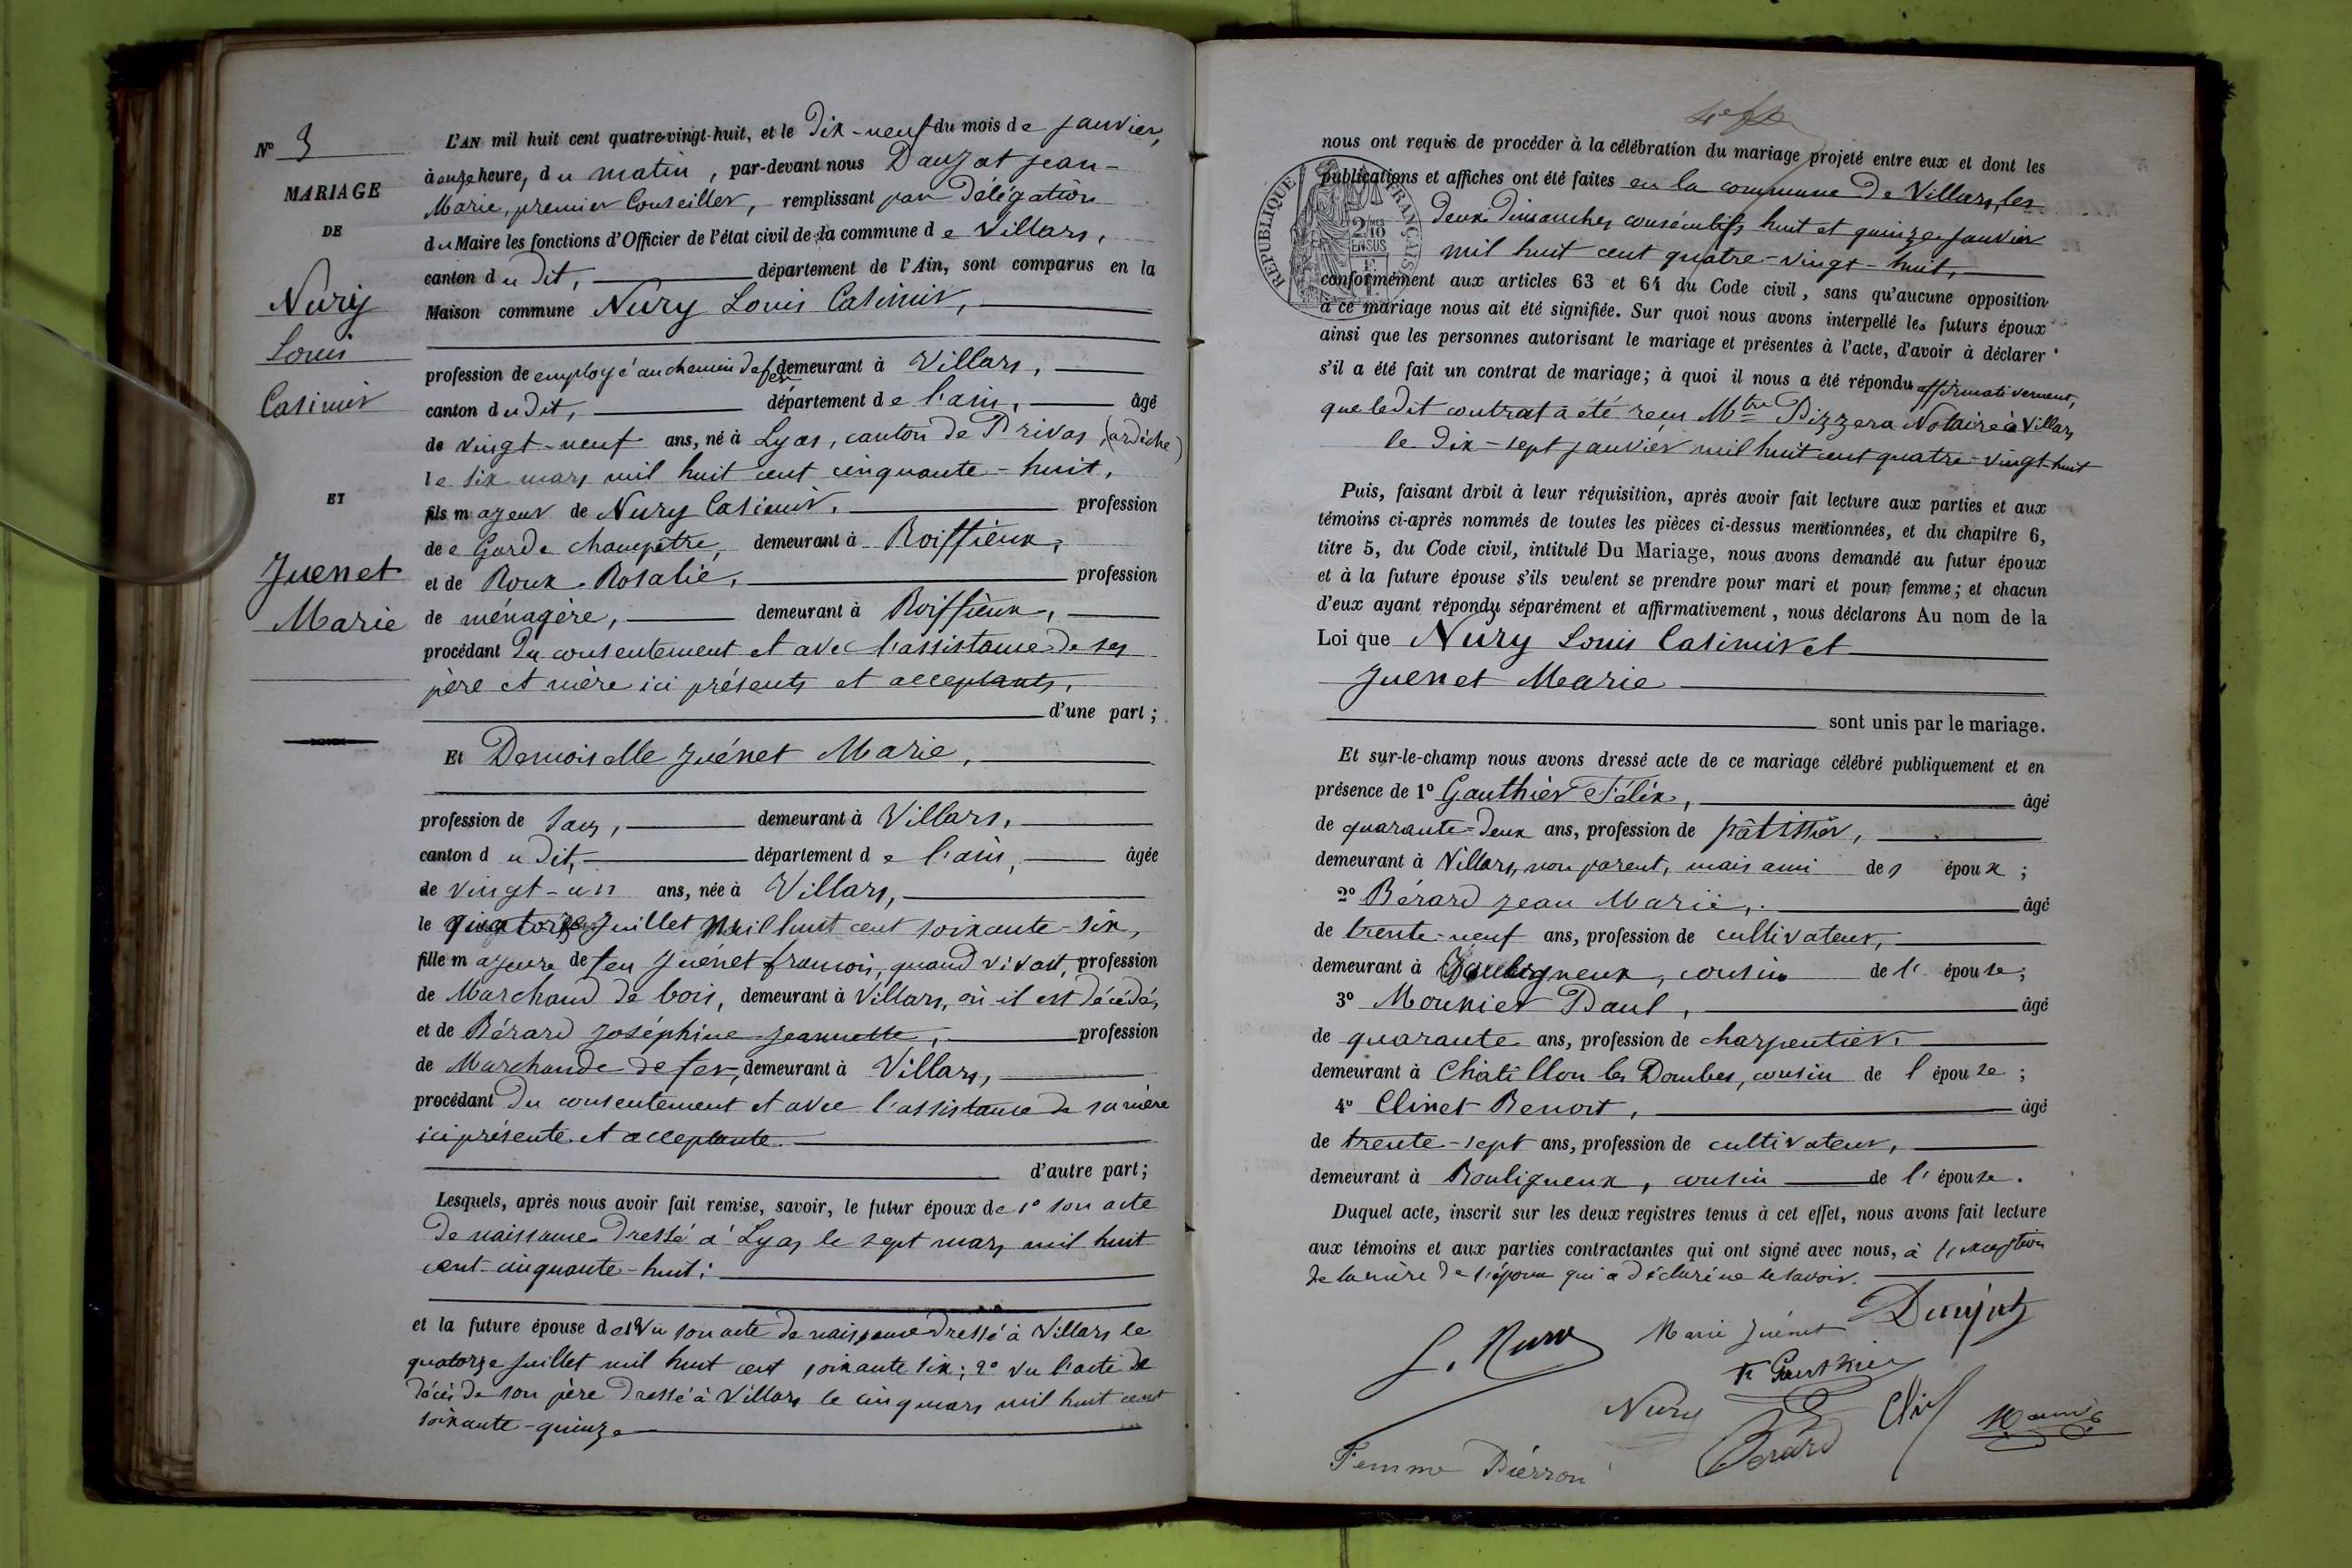 N° 3
MARIAGE
DE
Nury
Louis
Casimir
ET
Juenet
Marie
L'AN mil huit cent quatre-vingt-huit, et le Dix-neuf du mois de janvier,
à onze heure, du matin, par-devant nous Dauzat Jean-
Marie, premier Conseiller, remplissant par Délégation
du Maire les fonctions d'Officier de l'état civil de la commune de Villars,
canton du Dit, département de l'Ain, sont comparus en la
Maison commune Nury Louis Casimir,
profession de employé au chemin de fer demeurant à Villars,
canton du Dit, département de l'ain, âgé
de vingt-neuf ans, né à Lyas, canton de Privas, (ardèche)
le six mars mil huit cent cinquante-huit,
fils majeur de Nury Casimir, profession
de e Garde champêtre, demeurant à Roiffieux,
et de Roux Rosalie, profession
de ménagère, demeurant à Roiffieux,
procédant Du consentement et avec l'assistance de ses
père et mère ici présents et acceptants,
d'une part;
Et Demoiselle Juénet Marie,
profession de sans, demeurant à Villars,
canton du Dit, département de l'ain, âgée
de vingt-un ans, née à Villars,
le quatorze Juillet mil huit cent soixante-six,
fille majeure de feu Juénet françois, quand vivait, profession
de Marchand de bois, demeurant à Villars, où il est décédé,
et de Bérard Joséphine Jeannette, profession
de Marchande de fer, demeurant à Villars,
procédant Du consentement et avec l'assistance de sa mère
ici présente et acceptante.
d'autre part;
Lesquels, après nous avoir fait remise, savoir, le futur époux de 1° son acte
De naissance Dressé à Lyas le sept mars mil huit
cent cinquante-huit;
et la future épouse de 1° Vu son acte de naissance dressé à Villars le
quatorze Juillet mil huit cent soixante six; 2° vu l'acte de
décès de son père Dressé à Villars le cinq mars mil huit cent
soixante-quinze
RÉPUBLIQUE FRANÇAISE
2/10
EN SUS
nous ont requis de procéder à la célébration du mariage projeté entre eux et dont les
publications et affiches ont été faites en la commune De Villars, les
Deux Dimanches consécutifs huit et quinze janvier
mil huit cent quatre-vingt-huit,
conformément aux articles 63 et 64 du Code civil, sans qu'aucune opposition
à ce mariage nous ait été signifiée. Sur quoi nous avons interpellé les futurs époux
ainsi que les personnes autorisant le mariage et présentes à l'acte, d'avoir à déclarer
s'il a été fait un contrat de mariage; à quoi il nous a été répondu affirmativement,
que ledit contrat a été reçu Mtre Pizzera Notaire à Villars
le Dix-sept janvier mil huit cent quatre-vingt-huit
Puis, faisant droit à leur réquisition, après avoir fait lecture aux parties et aux
témoins ci-après nommés de toutes les pièces ci-dessus mentionnées, et du chapitre 6,
titre 5, du Code civil, intitulé Du Mariage, nous avons demandé au futur époux
et à la future épouse s'ils veulent se prendre pour mari et pour femme; et chacun
d'eux ayant répondu séparément et affirmativement, nous déclarons Au nom de la
Loi que Nury Louis Casimir et
Juenet Marie
sont unis par le mariage.
Et sur-le-champ nous avons dressé acte de ce mariage célébré publiquement et en
présence de 1° Gauthier Félix, âgé
de quarante-deux ans, profession de pâtissier,
demeurant à Villars, non parent, mais ami des époux;
2° Bérard Jean Marie, âgé
de trente-neuf ans, profession de cultivateur,
demeurant à Bouligneux, cousin de l'épouse;
3° Mounier Paul, âgé
de quarante ans, profession de charpentier,
demeurant à Chatillon les Dombes, cousin de l'épouse;
4° Clinet Benoit, âgé
de trente-sept ans, profession de cultivateur,
demeurant à Bouligneux, cousin de l'épouse.
Duquel acte, inscrit sur les deux registres tenus à cet effet, nous avons fait lecture
aux témoins et aux parties contractantes qui ont signé avec nous, à l'exception
de la mère de l'époux qui a déclaré ne le savoir.
L. Nury
Marie Juénet
F. Gauthier
Nury
Bérard
Femme Pierron